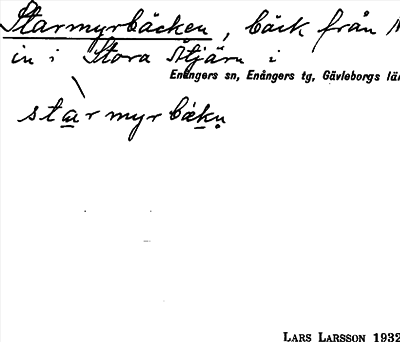 Starmyrbäcken, bäck från N
in i Stora Åtjärn i
Enångers sn, Enångers tg, Gävleborgs lä
starmyrbäkn
LARS LARSSON 1932